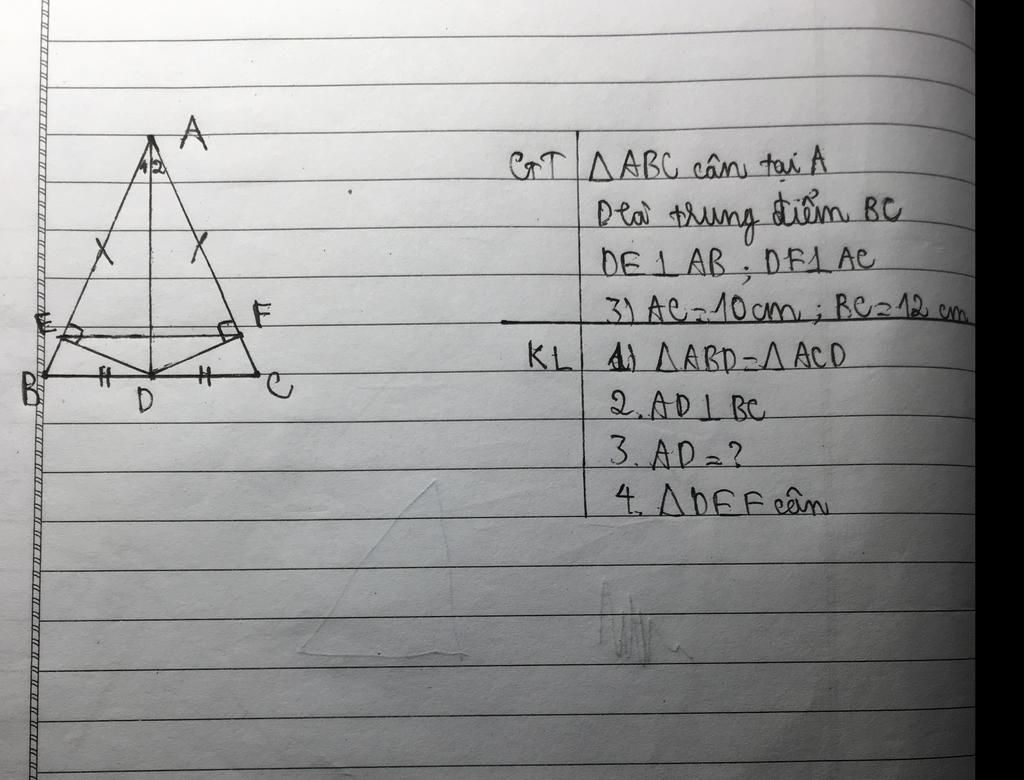 A
1 2
E
F
B
D
C
GT
ΔABC cân tại A
D là trung điểm BC
DE⊥AB ; DF⊥AC
3) AC=10cm ; BC=12 cm
KL
1) ΔABD=ΔACD
2. AD⊥BC
3. AD=?
4. ΔDEF cân